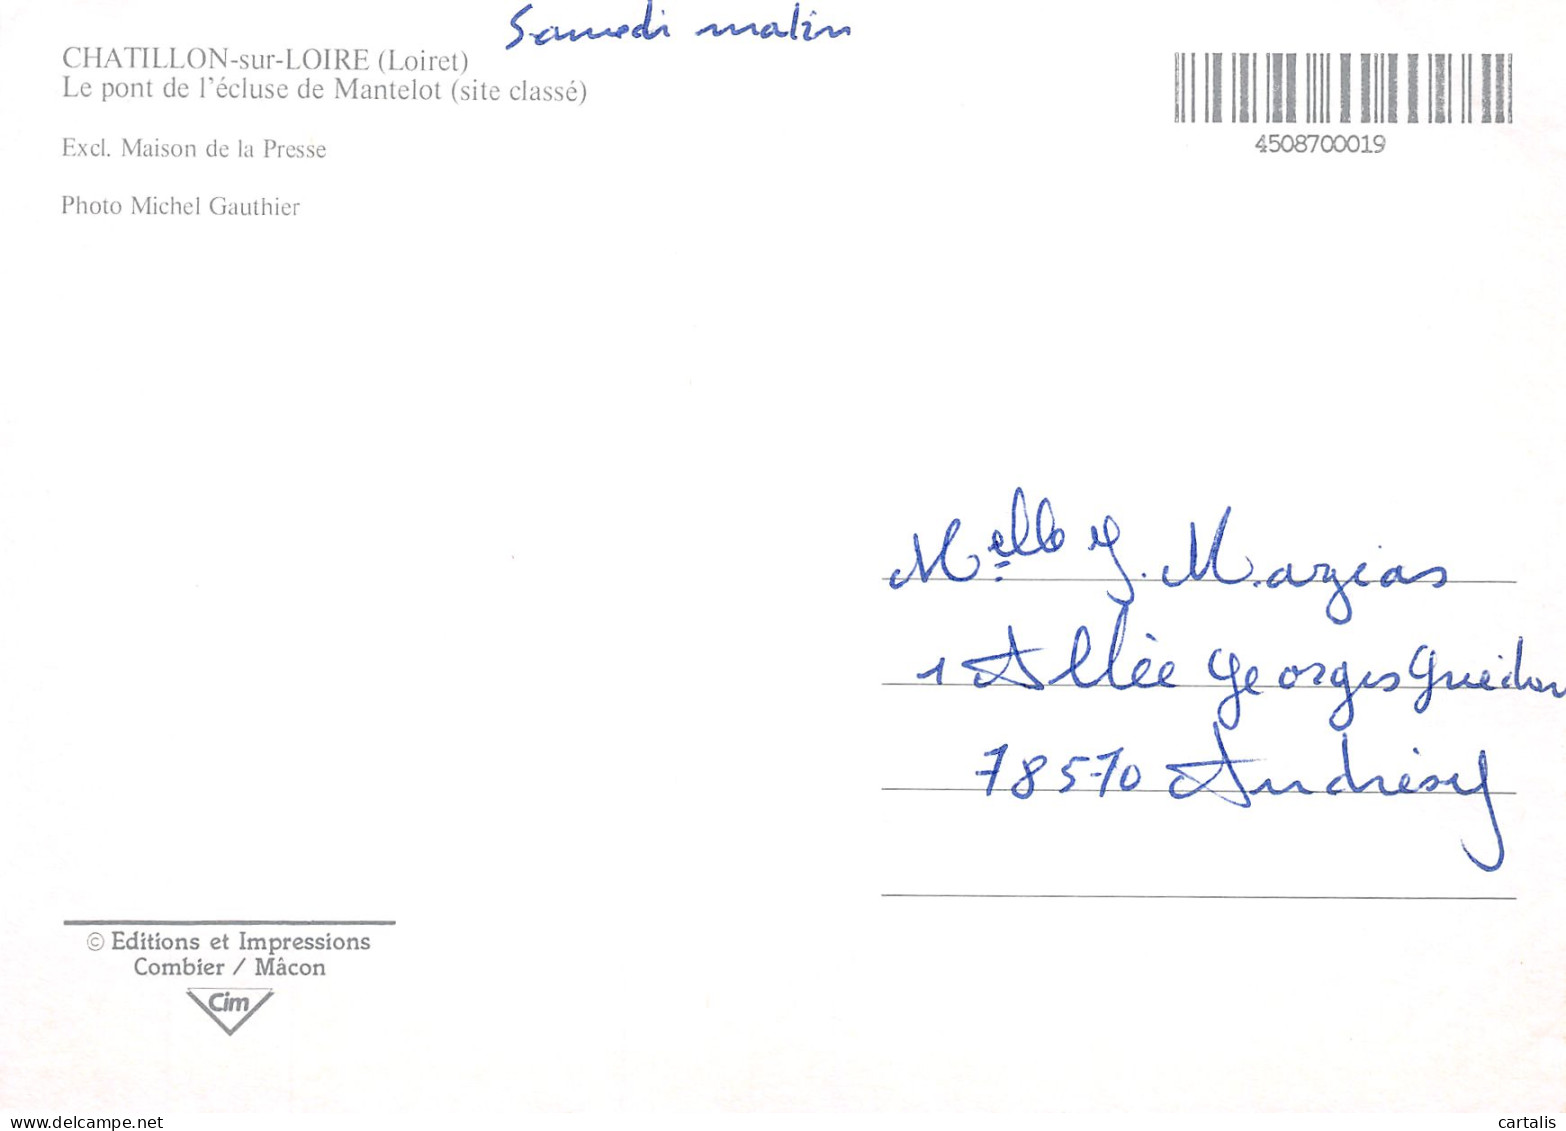 Samedi matin
CHATILLON-sur-LOIRE (Loiret)
Le pont de l'écluse de Mantelot (site classé)
Excl. Maison de la Presse
Photo Michel Gauthier
4508700019
Melle Y. Mazias
1 Allée Georges
78570 Andrésy
© Editions et Impressions
Combier / Mâcon
Cim
www.delcampe.net
cartalis